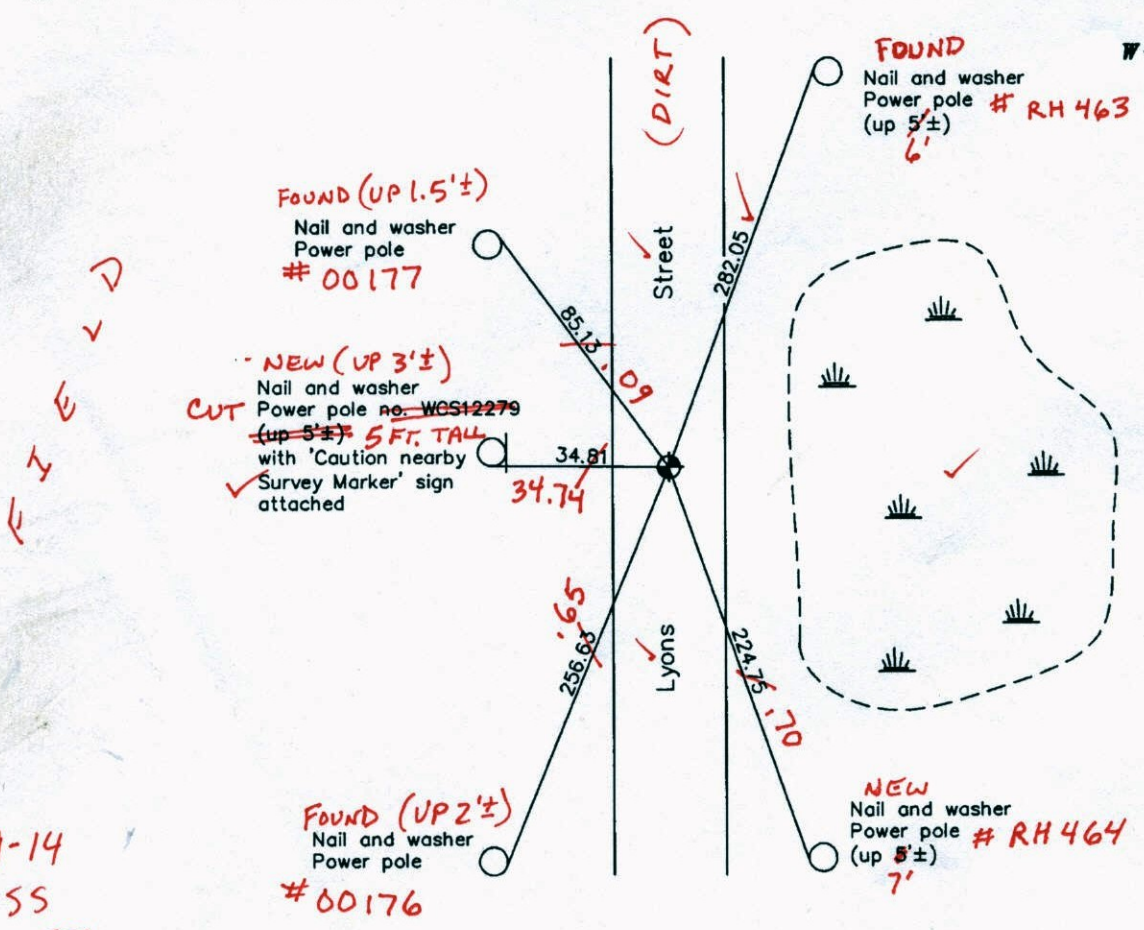 (DIRT)
Street
Lyons
FOUND
Nail and washer
Power pole # RH 463
(up 5'±)
6'
W
FOUND (UP 1.5'±)
Nail and washer
Power pole
# 00177
FIELD
NEW (UP 3'±)
Nail and washer
CUT Power pole no. WCS12279
(up 5'±) 5 FT. TALL
with 'Caution nearby
Survey Marker' sign
attached
282.05
85.13
.09
34.81
34.74
.65
256.63
224.75
.70
FOUND (UP 2'±)
Nail and washer
Power pole
# 00176
NEW
Nail and washer
Power pole # RH 464
(up 5'±)
7'
-14
SS